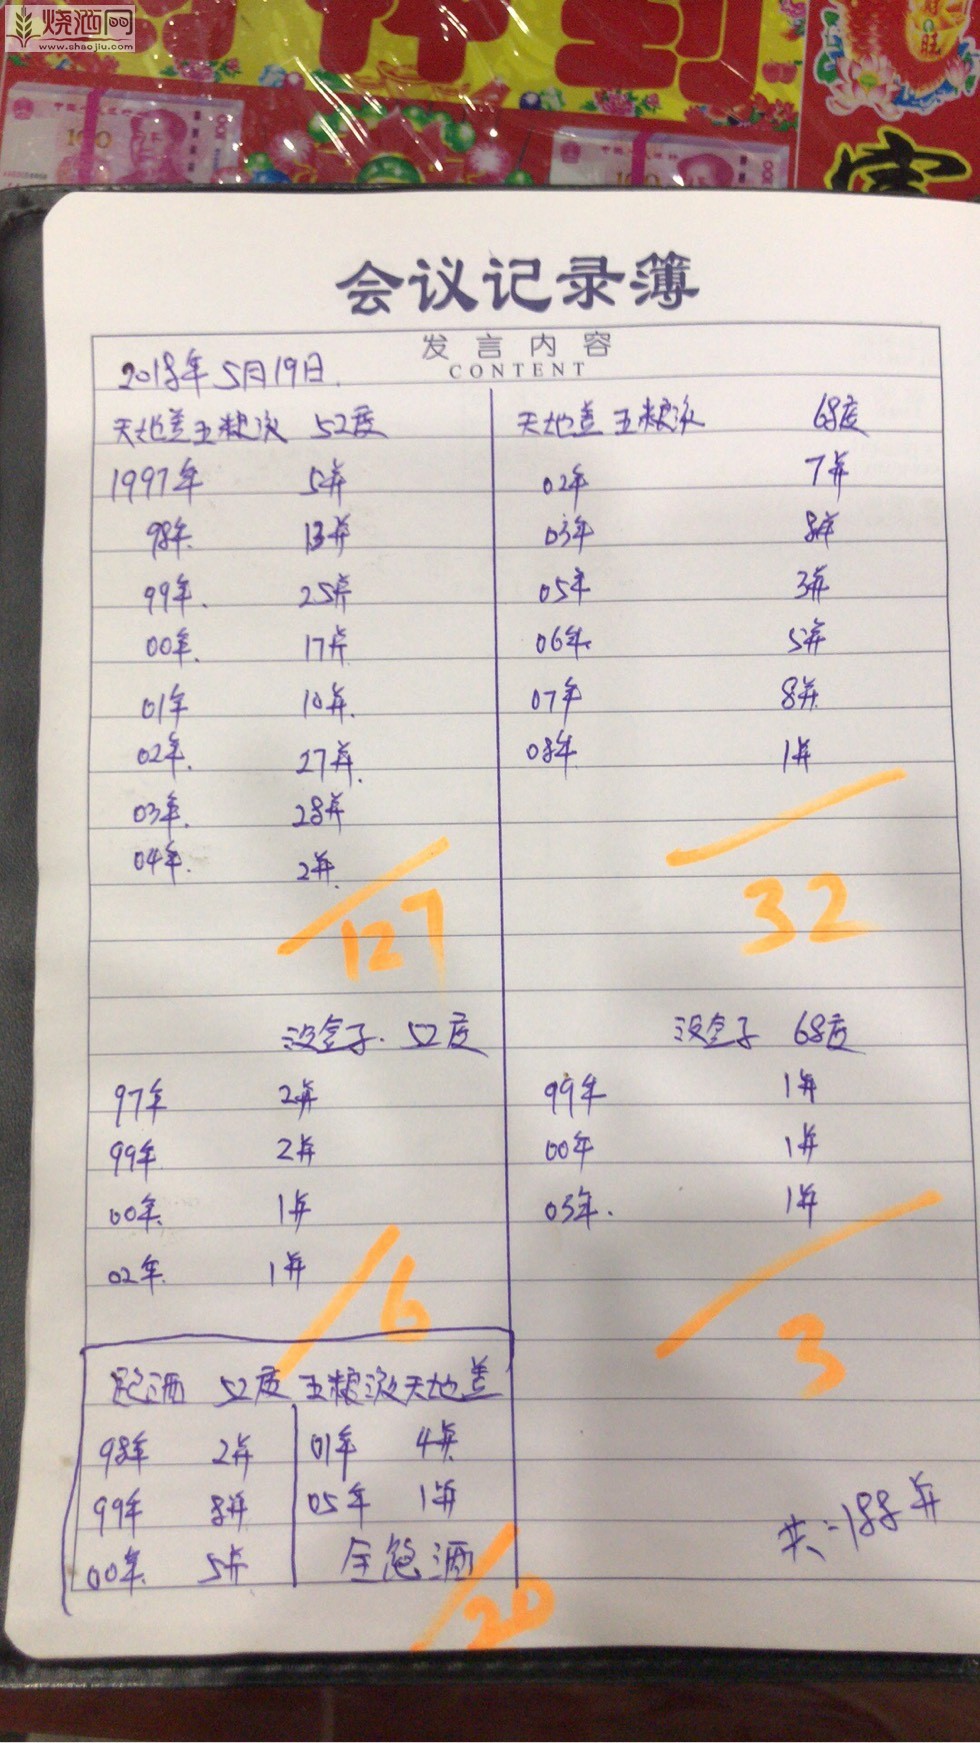 烧酒网
www.shaojiu.com
件到
旺
100
100
会议记录簿
发言内容
CONTENT
2018年5月19日
天地盖五粮液 52度
1997年 5并
98年 13并
99年. 25并
00年. 17并
01年 10并.
02年. 27并.
03年. 28并
04年. 2并.
127
天地盖五粮液 68度
02年 7并
03年 8并
05年 3并
06年. 5并
07年 8并
08年 1并
32
没盒子. 52度
97年 2并
99年 2并
00年. 1并
02年. 1并
6
没盒子 68度
99年 1并
00年 1并
03年. 1并
3
跑酒 52度 五粮液天地盖
98年 2并
99年 8并
00年. 5并
01年 4并
05年 1并
全跑酒
20
共:188并